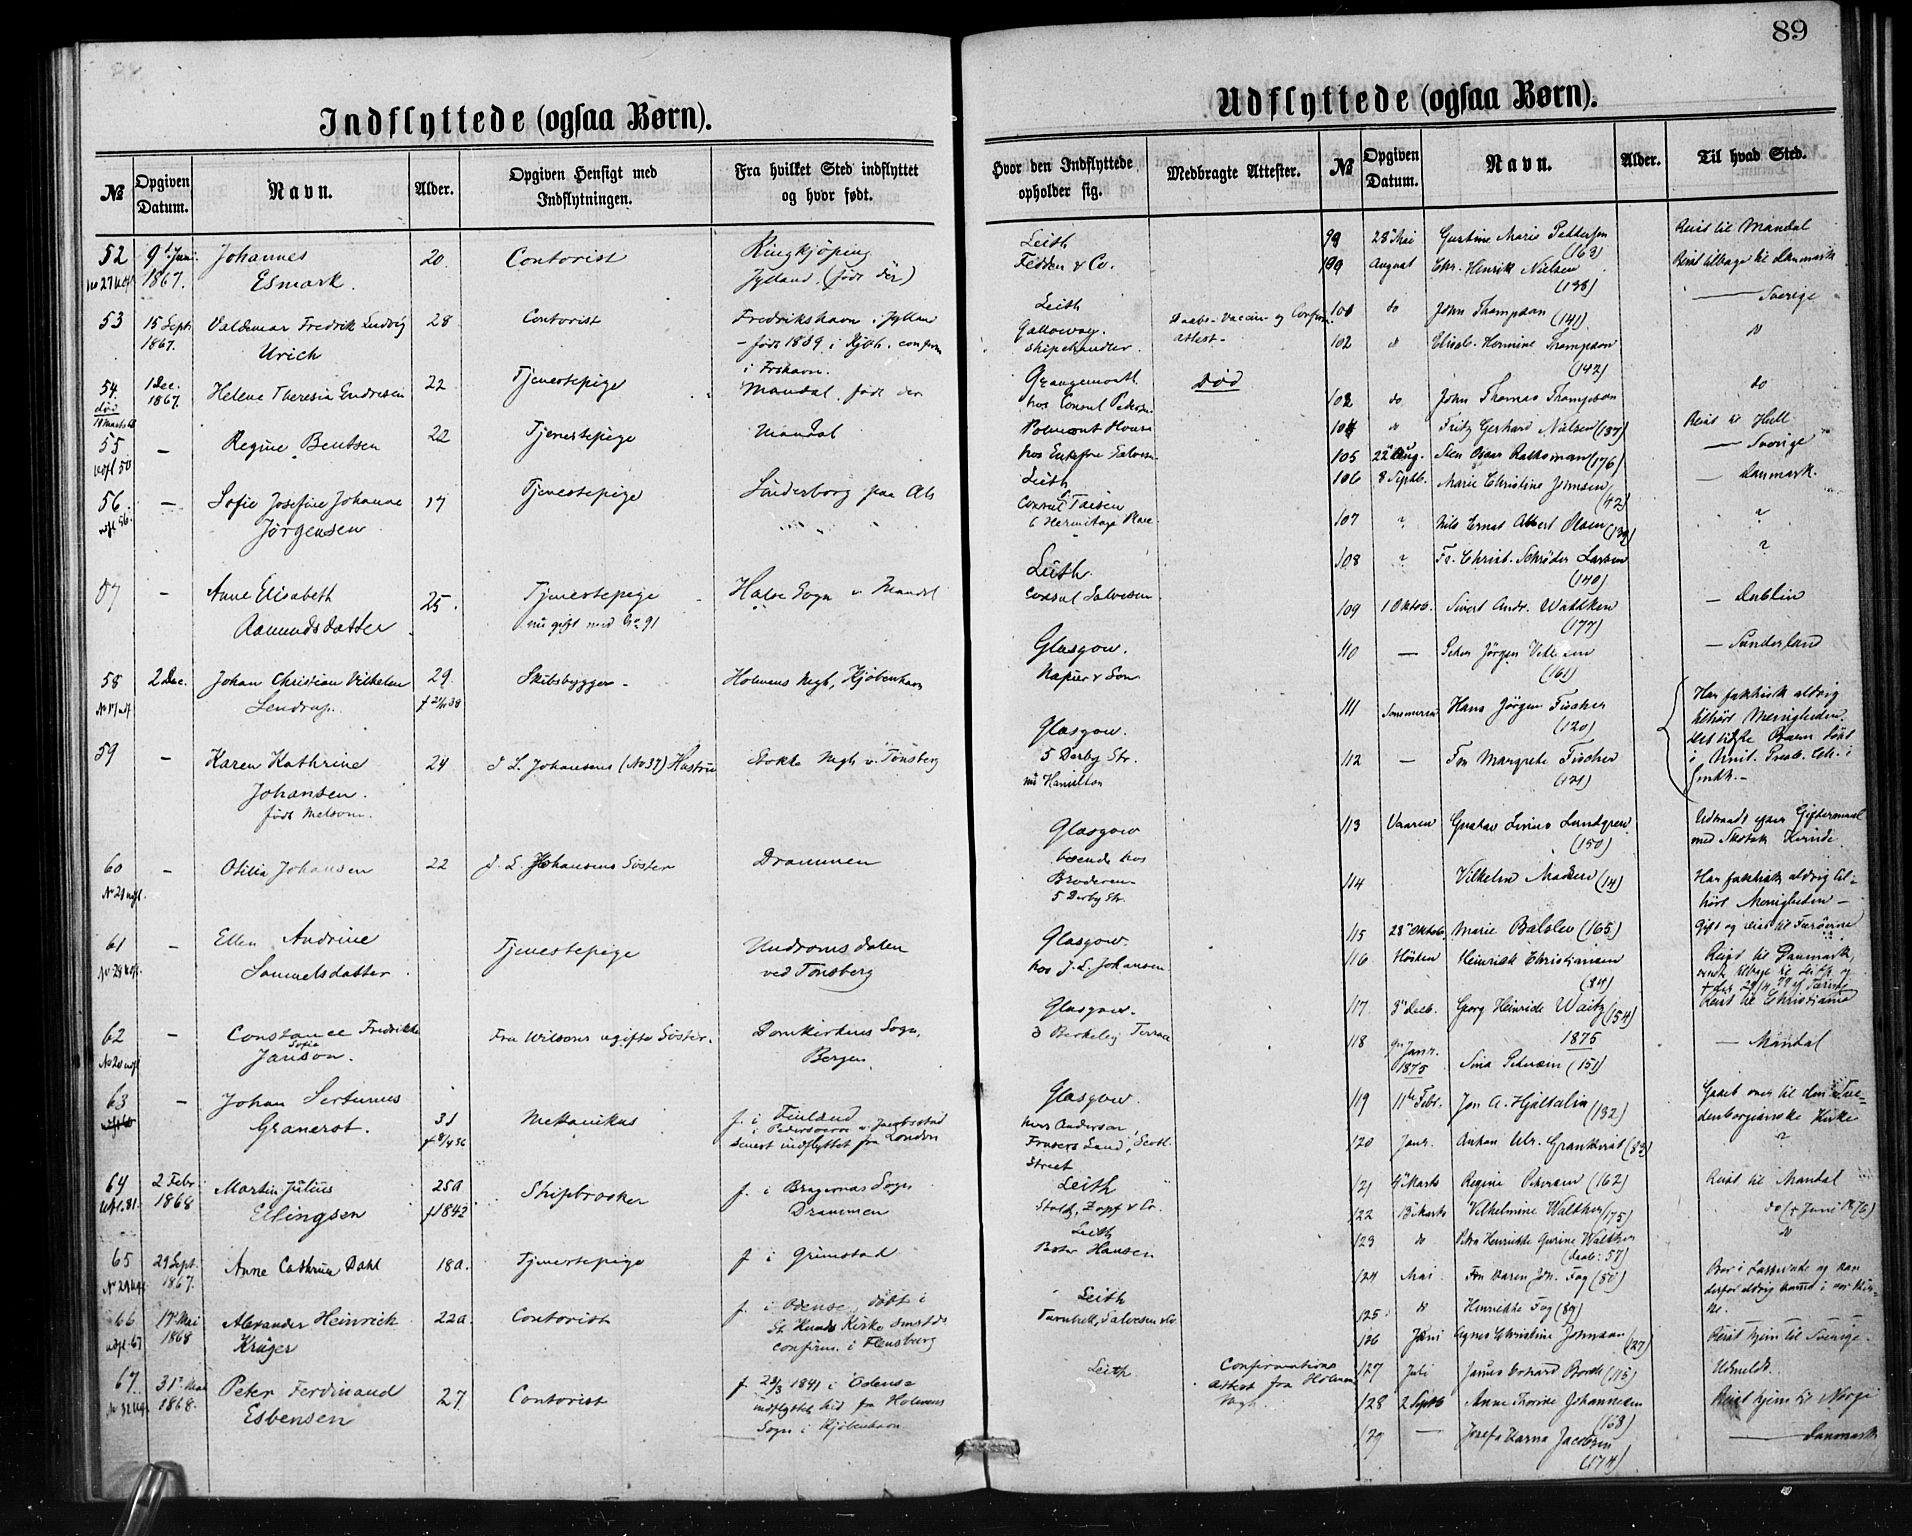 89
Indflyttede (ogsaa Børn).
№ Opgiven Datum. Navn. Alder. Opgiven Hensigt med Indflytningen. Fra hvilket Sted indflyttet og hvor født.
52 9 Juni 1867. Johannes Esmark. 20. Contorist Ringkjøping Jylland. (født der)
53 15 Sept. 1867. Valdemar Fredrik Ludvig Urich 28 Contorist Fredrikshavn i Jylland
født 1839 i Kjøbh. confirm. i Frshavn.
54 død 1 Dec. 1867. Helene Theresia Endresen 22 Tjenestepige Mandal, født der
55 udfl 50 — Regine Bentsen 22 Tjenestepige Mandal
56 — Sofie Josefine Johanne Jørgensen 17 Tjenestepige Sønderborg paa Als
57 — Anne Elisabeth Aamundsdatter 25. Tjenestepige Halse Sogn v. Mandal
nu gift med No 91
58 2 Dec. Johan Christian Vilhelm Lendrup. 29. Skibsbygger Holmens Mgh, Kjøbenhavn
59 — Karen Kathrine Johansen. født Melsom. 24 J. L. Johansens (No 37) Hustru Stokke Mgh v. Tønsberg
60 — Otilia Johansen 22 J. L. Johansens Søster Drammen
61 — Ellen Andrine Samuelsdatter Tjenestepige Undromsdalen ved Tønsberg
62 — Constance Fredrikke Sofie Janson. Fru Wilsons ugifte Søster. Domkirkens Sogn, Bergen
63 — Johan Sertunus Granerot. 31 Mekanikus f. i Finland
i Pedersøre v. Jacobstad
senest indflyttet fra London
64 udfl. 81. 2 Febr 1868 Martin Julius Ellingsen 25a f 1842 Shipbroker f. i Bragernes Sogn Drammen
65 29 Sept. 1867. Anne Cathrine Dahl 18a. Tjenestepige f i Grimstad
66 udfl. 67 17 Mai 1868 Alexander Heinrich Krüger 22a. Contorist f. i Odense, døbt i
St. Knuds Kirke smstds
confirm. i Flensburg
67 31 Mai 1868. Peter Ferdinand Esbensen 27 Contorist f 23/3 1841 i Odense
indflyttet hid fra Holmens
Sogn i Kjøbenhavn.
Udflyttede (ogsaa Børn).
Hvor den Indflyttede opholder sig. Medbragte Attester. № Opgiven Datum. Navn. Alder. Til hvad Sted.
Leith
Fedden & Co.
Leith
Galloway.
shipchandler.
Daabs- Vaccin- og Confirm. attest.
Grangemouth
hos Consul Pedersen
Død
Polmont House
hos Enkefru Salvesen
Leith
Consul Taisen
6 Hermitage Place
Leith.
Consul Salvesen
Glasgow.
Napier & Son
Glasgow.
5 Derby Str.
nu Hamilton
Glasgow
boende hos
Broderen
5 Derby Str.
Glasgow.
hos J. L. Johansen
Glasgow.
3 Berkeley Terrace
Glasgow.
Mrs Anderson,
Frasers Land, Scotl. Street
Leith
Stoltz, Zopf & Co.
Leith
Boter Hansen
Leith
Turnbull, Salvesen & Co
Leith
Confirmations Attest fra Holmens Mgh.
99 23 Mai Gurtine Marie Pettersen (163) Reist til Mandal
August Chr. Henrik Nielsen (138) Reist tilbage til Danmark
101 do John Thompson (141) — Sverige
102 do Elisab. Hermine Thompson (142) do
103 do John Thomas Thompson do
104 do Fritz Gerhard Nielsen (137) Reist til Hull
105 22 Aug. Sten Oscar Raksman (176) — Sverige
106 8 Septb. Marie Christine Jensen (42) — Danmark.
107 ? Nils Ernst Albert Olsen (139) ?
108 ? Fr. Christ. Schrøder Larsen (140) ?
109 1 Oktob. Sivert Andr. Watdken (177) — Dublin
110 — Peter Jörgen (161) — Sunderland
111 Sommeren Hans Jörgen Fischer (120) Har faktisk aldrig
tilhørt Menigheden.
112 — Fru Margrete Fischer (121) det sidste Barn døbt
i Unit. Presb. Ch. i
113 Vaaren Gustav Linus Lundgren (150) Udtraadt efter Giftermaal
med Skotsk Kvinde.
114 Vilhelm Madsen (14) Har faktisk aldrig til-
hørt Menigheden —
115 23 Oktob. Marie Balslev (165) Gift og reist til Færöerne
116 Høsten Heinrich Christiansen (84) Reist til Danmark,
vendt tilbage til Leith og
117 3 Decb. Georg Heinrich Waitz (154) Reist til Christiania
1875
118 Janr. 1875 Sina Petersen (151) — Mandal
119 11te Febr. Jon A. Hjaltalin (132) Gaaet over til den Sve-
denborgianske Kirke
120 Janr. Anton Ulr. Grankvist (83) ?
121 4 Marts Regine Petersen (162) Reist til Mandal
122 13 Marts Vilhelmine Walther (175) do († Juni 1876)
123 do Petra Henrikke Gurine Walther (daab: 57) do
124 Mai Fru Karen Joh. Fog (80) Bor i Lasswade og kan
derfor aldrig komme i vor Kir-
ke.
125 do Henrikke Fog (89)
126 Juni Agnes Christine Johnson (27) Reist hjem til Sverige.
127 Juli Janus Erhard Brorth (115) Udmeldt.
128 2 Septb Anne Thorine Johannesen (168) Reist hjem til Norge
129 — Josefa Karna Jacobsen (174) — Danmark